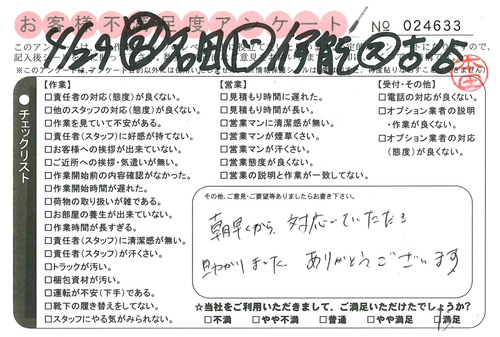 お客様不満足度アンケート
No 024633
チェックリスト
【作業】
□責任者の対応(態度)が良くない。
□他のスタッフの対応(態度)が良くない。
□作業を見ていて不安がある。
□責任者(スタッフ)に好感が持てない。
□お客様への挨拶が出来ていない。
□ご近所への挨拶・気遣いが無い。
□作業開始前の内容確認がなかった。
□作業開始時間が遅れた。
□荷物の取り扱いが雑である。
□お部屋の養生が出来ていない。
□作業時間が長すぎる。
□責任者(スタッフ)に清潔感が無い。
□責任者(スタッフ)が汗くさい。
□トラックが汚い。
□梱包資材が汚い。
□運転が不安(下手)である。
□靴下の履き替えをしてない。
□スタッフにやる気がみられない。
【営業】
□見積もり時間に遅れた。
□見積もり時間が長い。
□営業マンに清潔感が無い。
□営業マンが煙草くさい。
□営業マンが汗くさい。
□営業態度が良くない。
□営業の説明と作業が一致してない。
【受付・その他】
□電話の対応が良くない。
□オプション業者の説明
・作業が良くない。
□オプション業者の対応
(態度)が良くない。
その他、ご意見・ご要望等ありましたらお書き下さい。
朝早くから、対応していただき
助かりました。ありがとうございます
☆当社をご利用いただきまして、ご満足いただけたでしょうか?
□不満 □やや不満 □普通 □やや満足 □満足